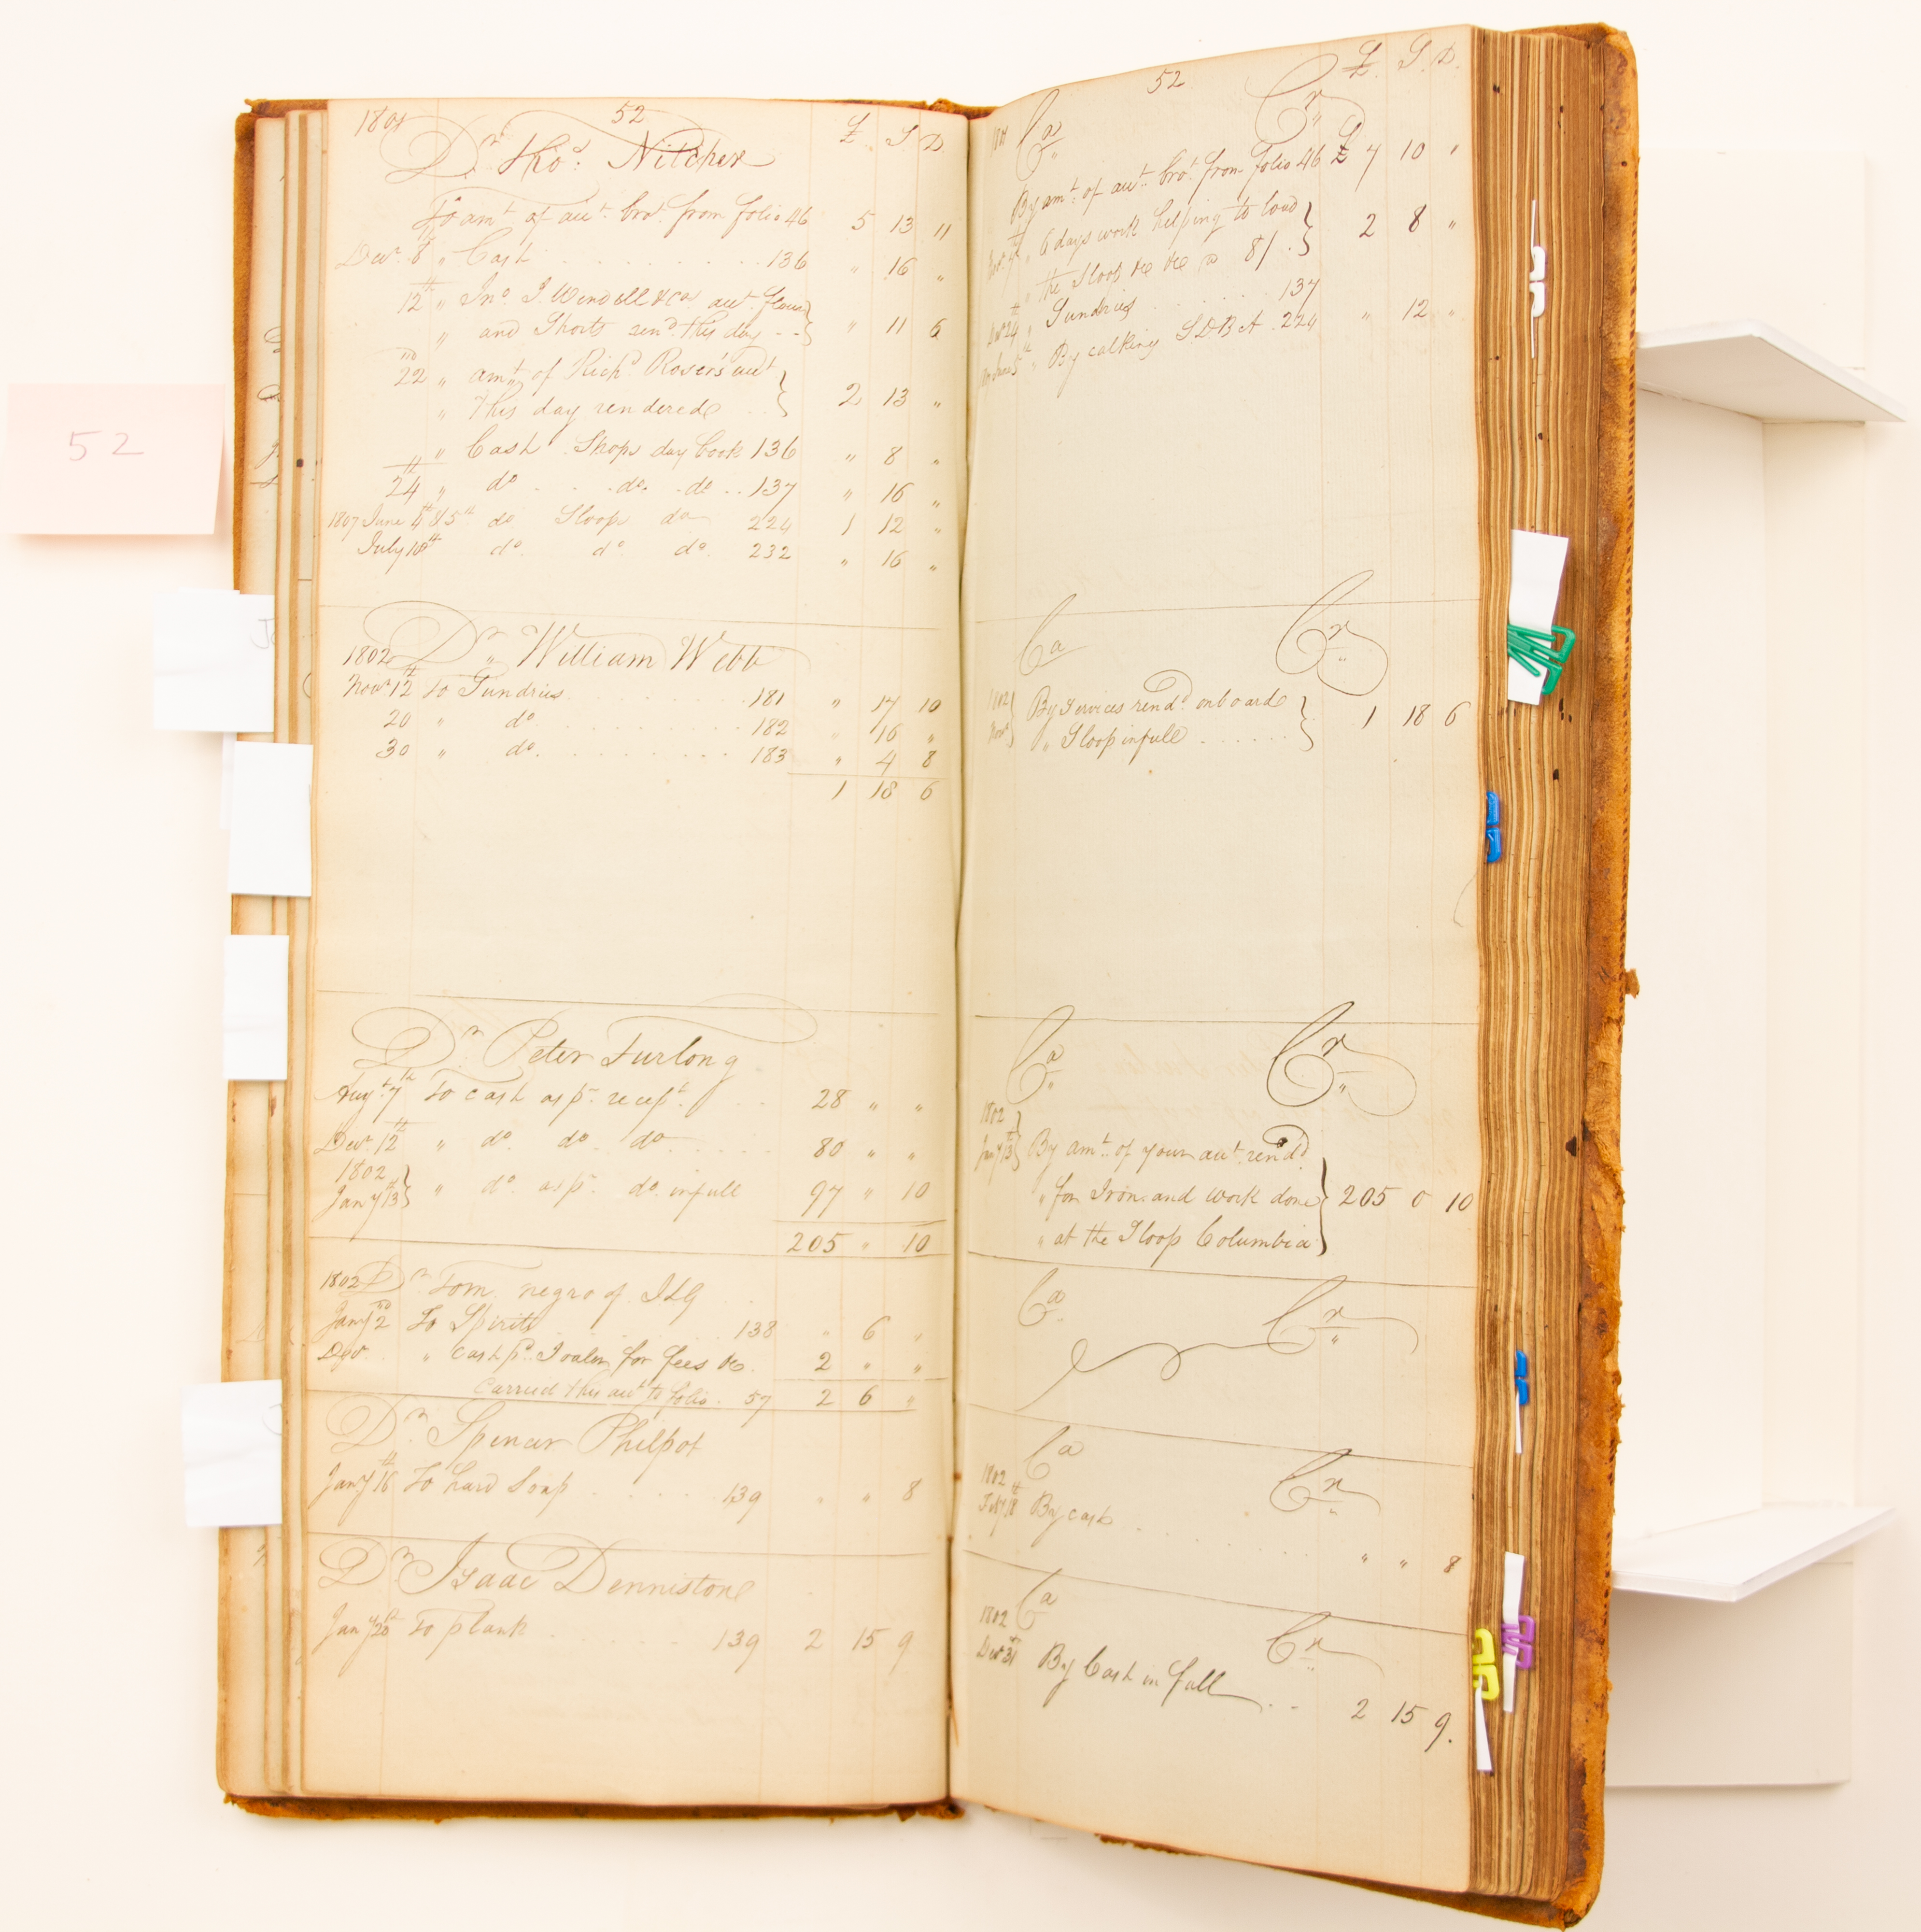 52
1801 52 £ S D
Dr. Thos: Nitcher
To amt of acct. brot. from folio 46 5 13 11
Decr. 8 " Cash 136 " 16 "
12th " Jno. J. Wendell & Co. acct. flour
" and Shorts rend. this day " 11 6
22nd " amt of Richd. Roser's acct
" this day rendered 2 13 "
" Cash Shops day book 136 " 8 "
24th " do do. do 137 " 16 "
1807 June 4th & 5th do Sloops do 224 1 12 "
July 10th do. do. do. 232 " 16 "
1802 Dr. William Webb
Novr 12th To Sundries 181 " 17 10
20 " do 182 " 16 "
30 " do. 183 " 4 8
1 18 6
Dr. Peter Furlong
Augt. 7th To cash as pr. recept. 28 " "
Decr. 12th " do do do 80 " "
1802
Jany 13th " do. as pr. do. in full 97 " 10
205 " 10
1802 Dr. Tom negro of
Jany 2nd To Spirits 138 " 6 "
Decr. " cash pd. for fees &c. 2 " "
Carried this acct. to folio. 57 2 6 "
Dr. Spencer Philpot
Jany 16th To hard Soap 139 " " 8
Dr. Isaac Dennistone
Jany 20th To plank 139 2 15 9
52 £ S D.
Ca Cr
By amt. of acct. brot. from folio 46 £ 7 10 "
" 6 days work helping to load
" the Sloop &c &c @ 8/. 2 8 "
Decr 24th " Sundries 137
" By calking S.D.B A. 224 " 12 "
Ca Cr
1802
Novr By services rend. onboard
" Sloop in full 1 18 6
Ca Cr
1802
Jany 13th By amt. of your acct. rend.
" for Iron and work done 205 0 10
" at the Sloop Columbia
Ca Cr
Ca Cr
1802
Feby 18th By cash " " 8
Ca Cr
1802
Decr 31 By Cash in full 2 15 9.